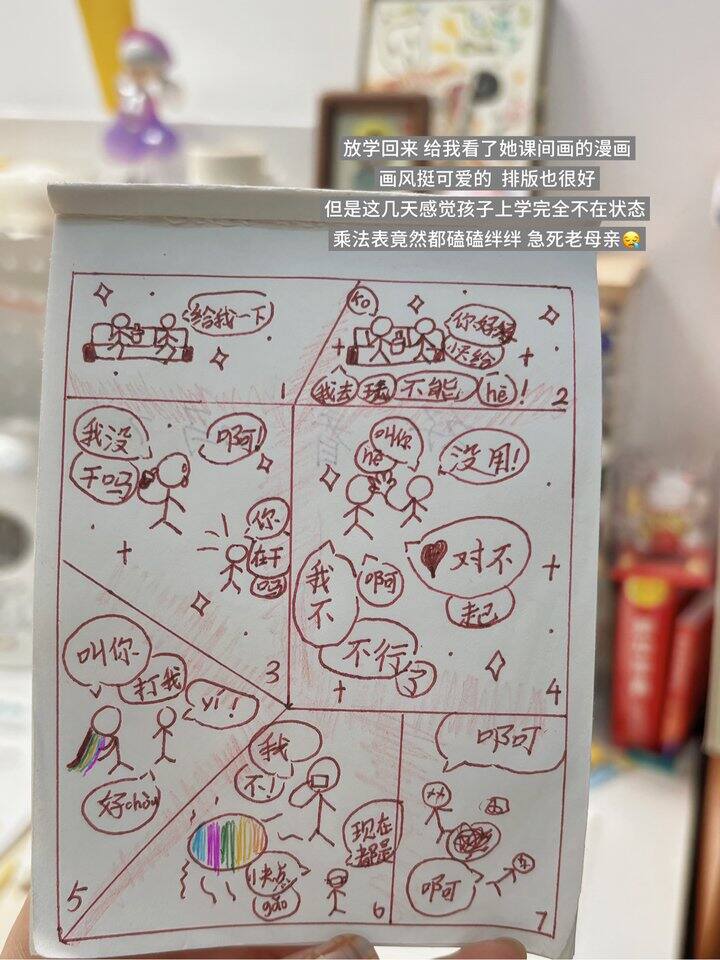 放学回来 给我看了她课间画的漫画
画风挺可爱的 排版也很好
但是这几天感觉孩子上学完全不在状态
乘法表竟然都磕磕绊绊 急死老母亲😪
给我一下
1
你好
快给
我去
不能
hē!
2
我没
干吗
啊!
你
在干
吗
3
叫你
hē
没用!
对不
起
我
不
啊
不行
了
4
叫你
打我
yí!
好chòu
5
我
不!
现在
都是
快点
gǎo
6
啊
啊
7